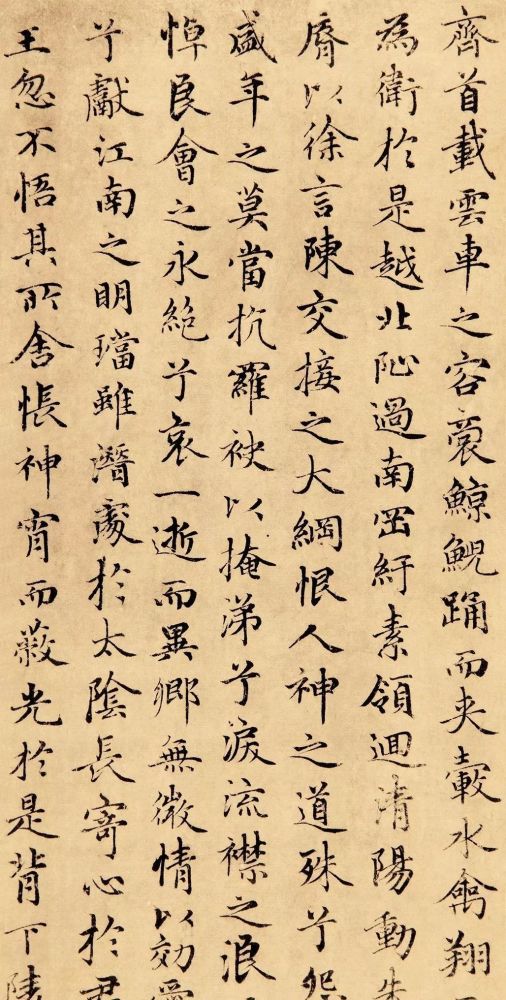 齊首載雲車之容裔鯨鯢踴而夾轂水禽翔
為衛於是越北沚過南岡紆素領迴清陽動
脣以徐言陳交接之大綱恨人神之道殊兮怨
盛年之莫當抗羅袂以掩涕兮淚流襟之浪
悼良會之永絕兮哀一逝而異鄉無微情以効
兮獻江南之明璫雖潛處於太陰長寄心於君
王忽不悟其所舍悵神宵而蔽光於是背下陵